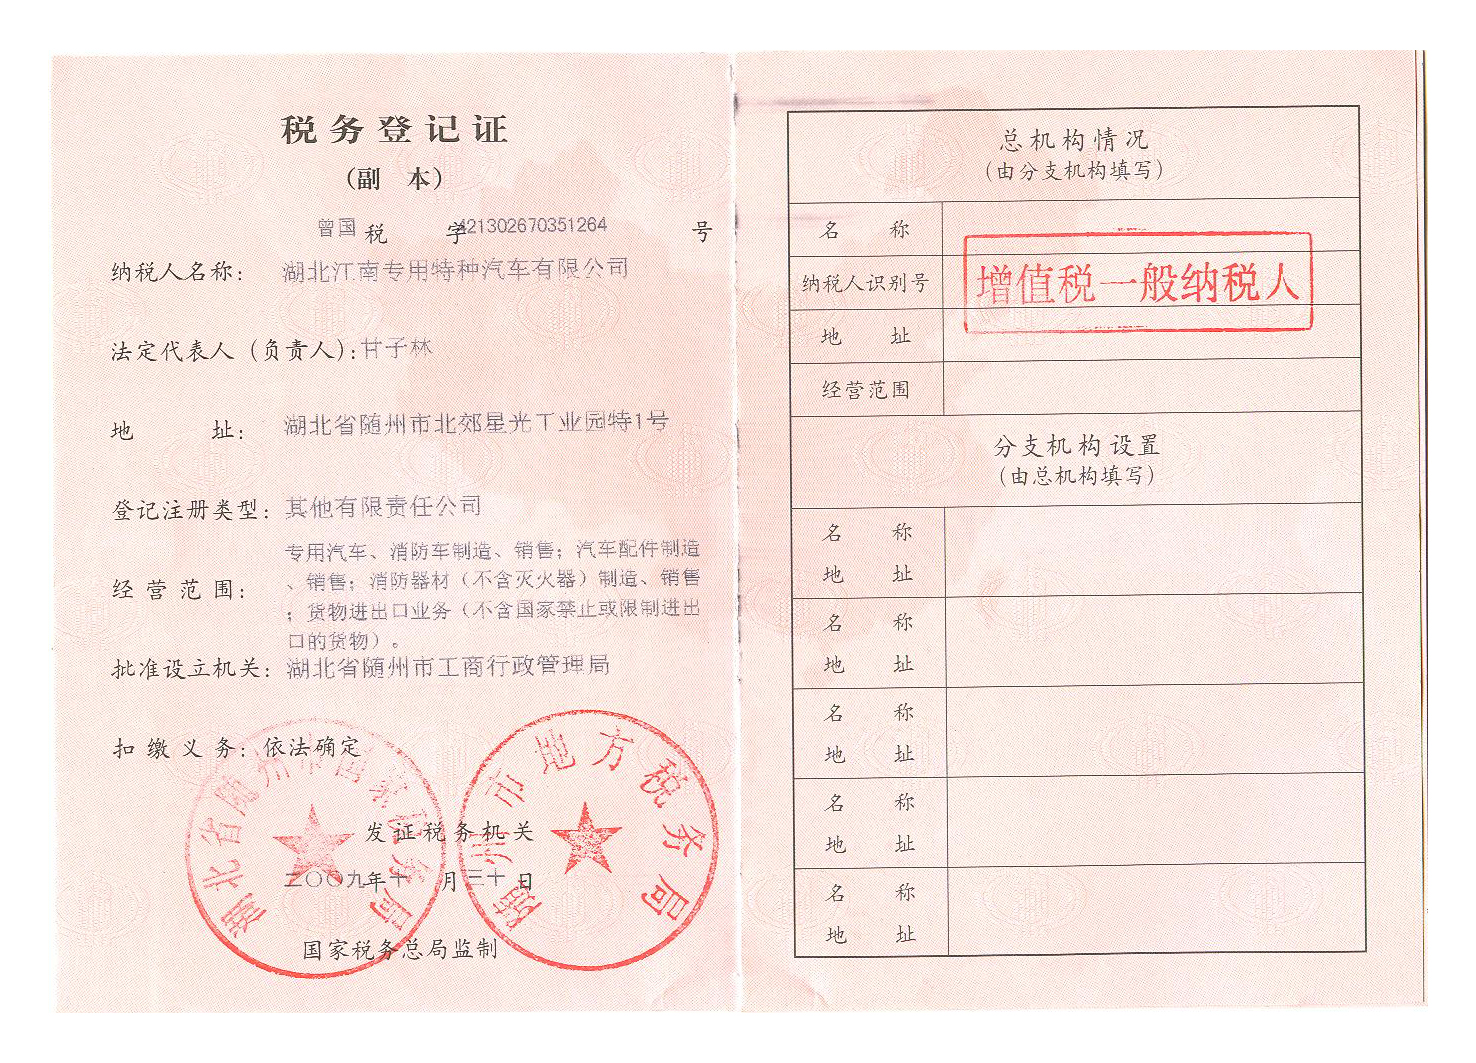 税务登记证
（副 本）
曾国 税 字 421302670351264 号
纳税人名称： 湖北江南专用特种汽车有限公司
法定代表人（负责人）：甘子林
地 址： 湖北省随州市北郊星光工业园特1号
登记注册类型： 其他有限责任公司
专用汽车、消防车制造、销售；汽车配件制造
经营范围： 、销售；消防器材（不含灭火器）制造、销售
；货物进出口业务（不含国家禁止或限制进出
口的货物）。
批准设立机关： 湖北省随州市工商行政管理局
扣缴义务：依法确定
湖北省随州市国家税务局
随州市地方税务局
发证税务机关
二〇〇九年十 月三十日
国家税务总局监制
总机构情况
（由分支机构填写）
名 称
纳税人识别号
增值税一般纳税人
地 址
经营范围
分支机构设置
（由总机构填写）
名 称
地 址
名 称
地 址
名 称
地 址
名 称
地 址
名 称
地 址